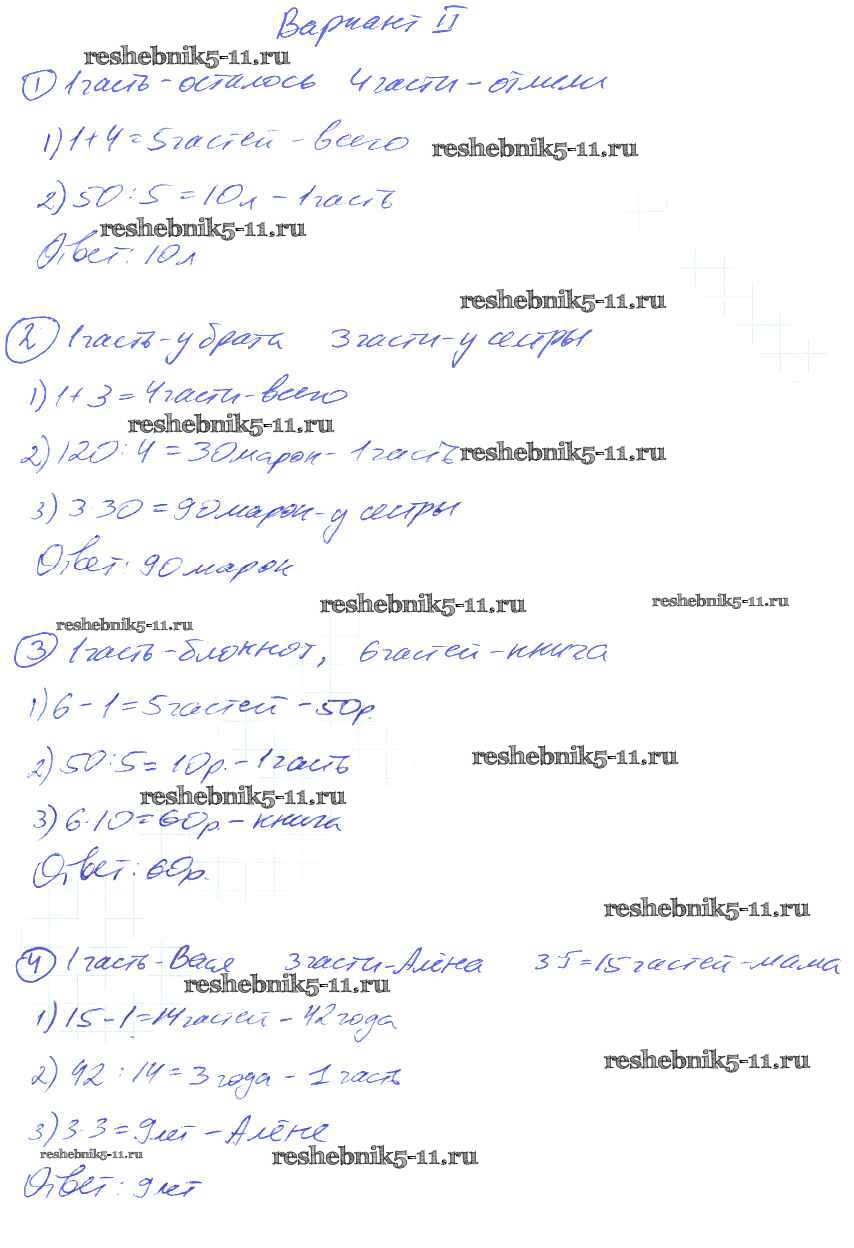 Вариант II
reshebnik5-11.ru
1 1 часть - осталось 4 части - отлили
1) 1+4=5 частей - всего
reshebnik5-11.ru
2) 50:5=10л - 1 часть
reshebnik5-11.ru
Ответ: 10 л
reshebnik5-11.ru
2 1 часть - у брата 3 части - у сестры
1) 1+3=4 части - всего
reshebnik5-11.ru
2) 120:4=30 марок - 1 часть
reshebnik5-11.ru
3) 3·30=90 марок - у сестры
Ответ: 90 марок
reshebnik5-11.ru
reshebnik5-11.ru
reshebnik5-11.ru
3 1 часть - блокнот, 6 частей - книга
1) 6-1=5 частей - 50р.
2) 50:5=10р. - 1 часть
reshebnik5-11.ru
reshebnik5-11.ru
3) 6·10=60р. - книга
Ответ: 60р.
reshebnik5-11.ru
4 1 часть - Вася 3 части - Алёна 3·5=15 частей - мама
reshebnik5-11.ru
1) 15-1=14 частей - 42 года
2) 42:14=3 года - 1 часть
reshebnik5-11.ru
3) 3·3=9 лет - Алёне
reshebnik5-11.ru
reshebnik5-11.ru
Ответ: 9 лет